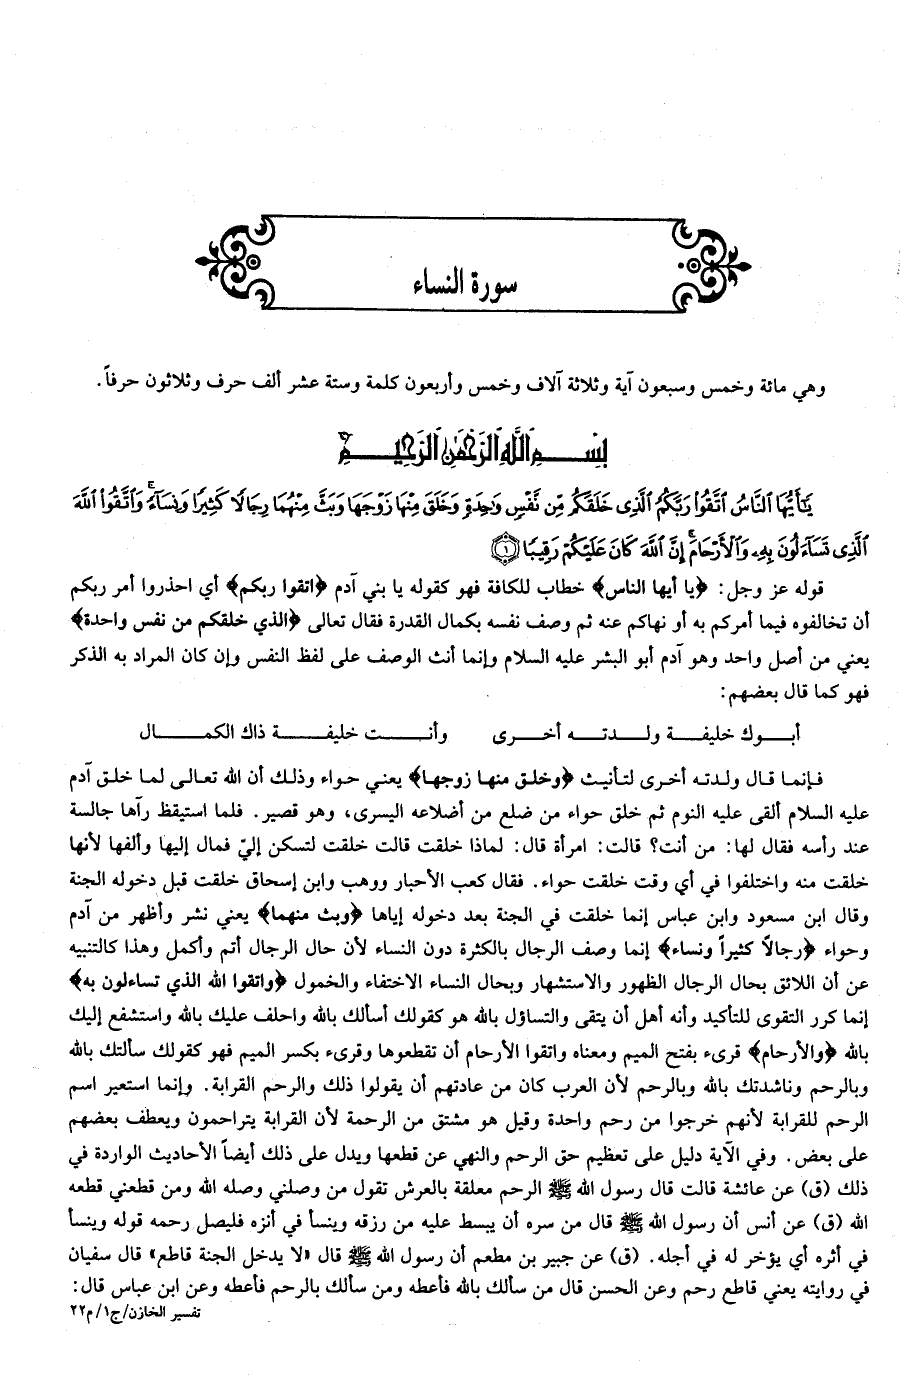 سورة النساء
وهي مائة وخمس وسبعون آية وثلاثة آلاف وخمس وأربعون كلمة وستة عشر ألف حرف وثلاثون حرفاً.
بِسْمِ اللَّهِ الرَّحْمَٰنِ الرَّحِيمِ
يَٰٓأَيُّهَا ٱلنَّاسُ ٱتَّقُوا۟ رَبَّكُمُ ٱلَّذِى خَلَقَكُم مِّن نَّفْسٍ وَٰحِدَةٍ وَخَلَقَ مِنْهَا زَوْجَهَا وَبَثَّ مِنْهُمَا رِجَالًا كَثِيرًا وَنِسَآءً ۚ وَٱتَّقُوا۟ ٱللَّهَ
ٱلَّذِى تَسَآءَلُونَ بِهِۦ وَٱلْأَرْحَامَ ۚ إِنَّ ٱللَّهَ كَانَ عَلَيْكُمْ رَقِيبًا ١
قوله عز وجل: ﴿يا أيها الناس﴾ خطاب للكافة فهو كقوله يا بني آدم ﴿اتقوا ربكم﴾ أي احذروا أمر ربكم
أن تخالفوه فيما أمركم به أو نهاكم عنه ثم وصف نفسه بكمال القدرة فقال تعالى ﴿الذي خلقكم من نفس واحدة﴾
يعني من أصل واحد وهو آدم أبو البشر عليه السلام وإنما أنث الوصف على لفظ النفس وإن كان المراد به الذكر
فهو كما قال بعضهم:
أبوك خليفة ولدته أخرى وأنت خليفة ذاك الكمال
فإنما قال ولدته أخرى لتأنيث ﴿وخلق منها زوجها﴾ يعني حواء وذلك أن الله تعالى لما خلق آدم
عليه السلام ألقى عليه النوم ثم خلق حواء من ضلع من أضلاعه اليسرى، وهو قصير. فلما استيقظ رآها جالسة
عند رأسه فقال لها: من أنت؟ قالت: امرأة قال: لماذا خلقت قالت خلقت لتسكن إليّ فمال إليها وألفها لأنها
خلقت منه واختلفوا في أي وقت خلقت حواء. فقال كعب الأحبار ووهب وابن إسحاق خلقت قبل دخوله الجنة
وقال ابن مسعود وابن عباس إنما خلقت في الجنة بعد دخوله إياها ﴿وبث منهما﴾ يعني نشر وأظهر من آدم
وحواء ﴿رجالاً كثيراً ونساء﴾ إنما وصف الرجال بالكثرة دون النساء لأن حال الرجال أتم وأكمل وهذا كالتنبيه
عن أن اللائق بحال الرجال الظهور والاستشهار وبحال النساء الاختفاء والخمول ﴿واتقوا الله الذي تساءلون به﴾
إنما كرر التقوى للتأكيد وأنه أهل أن يتقى والتساؤل بالله هو كقولك أسألك بالله واحلف عليك بالله واستشفع إليك
بالله ﴿والأرحام﴾ قرىء بفتح الميم ومعناه واتقوا الأرحام أن تقطعوها وقرىء بكسر الميم فهو كقولك سألتك بالله
وبالرحم وناشدتك بالله وبالرحم لأن العرب كان من عادتهم أن يقولوا ذلك والرحم القرابة. وإنما استعير اسم
الرحم للقرابة لأنهم خرجوا من رحم واحدة وقيل هو مشتق من الرحمة لأن القرابة يتراحمون ويعطف بعضهم
على بعض. وفي الآية دليل على تعظيم حق الرحم والنهي عن قطعها ويدل على ذلك أيضاً الأحاديث الواردة في
ذلك (ق) عن عائشة قالت قال رسول الله ﷺ الرحم معلقة بالعرش تقول من وصلني وصله الله ومن قطعني قطعه
الله (ق) عن أنس أن رسول الله ﷺ قال من سره أن يبسط عليه من رزقه وينسأ في أنزه فليصل رحمه قوله وينسأ
في أثره أي يؤخر له في أجله. (ق) عن جبير بن مطعم أن رسول الله ﷺ قال «لا يدخل الجنة قاطع» قال سفيان
في روايته يعني قاطع رحم وعن الحسن قال من سألك بالله فأعطه ومن سألك بالرحم فأعطه وعن ابن عباس قال:
تفسير الخازن/ج١/م٢٢